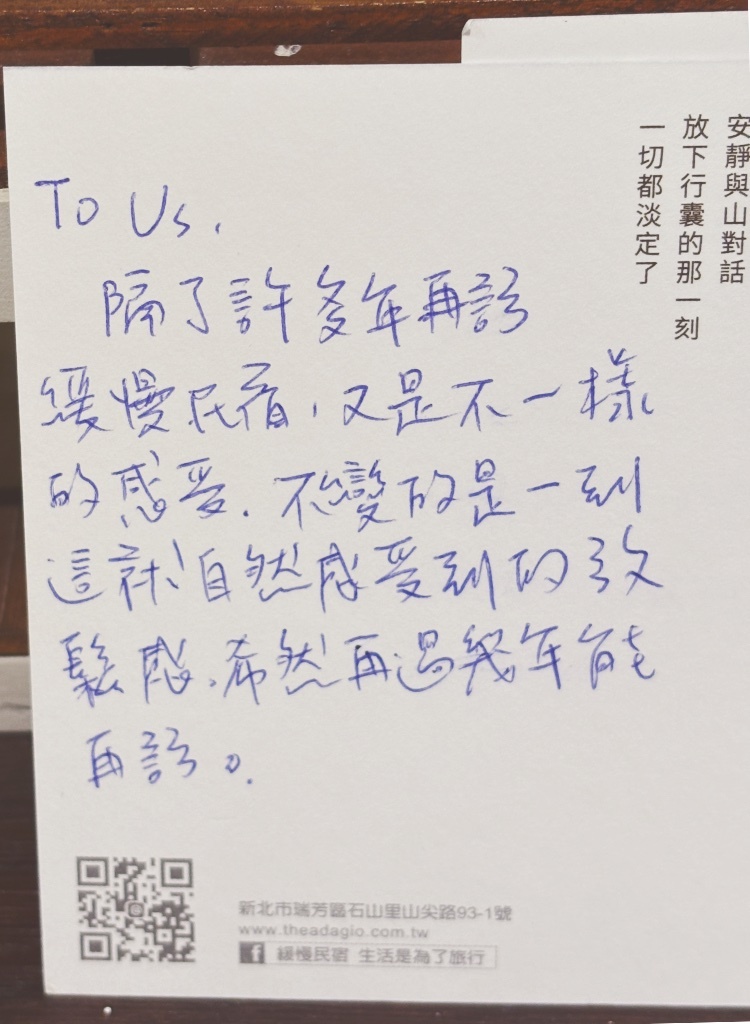 安靜與山對話
放下行囊的那一刻
一切都淡定了
To Us,
隔了許多年再訪
緩慢民宿,又是不一樣
的感受.不變的是一到
這就自然感受到的放
鬆感.希然再過幾年能
再訪。
新北市瑞芳區石山里山尖路93-1號
www.theadagio.com.tw
f 緩慢民宿 生活是為了旅行